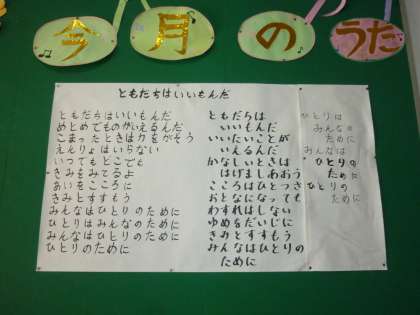 今月のうた
ともだちはいいもんだ
ともだちはいいもんだ
めとめでものがいえるんだ
こまったときは力をかそう
えんりょはいらない
いつでもどこでも
きみをみてるよ
あいをこころに
きみとすすもう
みんなはひとりのために
ひとりはみんなのために
みんなはひとりのために
ひとりのために
ともだちは
いいもんだ
いいたいことが
いえるんだ
かなしいときは
はげましあおう
こころはひとつさ
おとなになっても
わすれはしない
ゆめをだいじに
きみとすすもう
みんなはひとりの
ために
ひとりは
みんなの
ために
みんなは
ひとりの
ために
ひとりの
ために